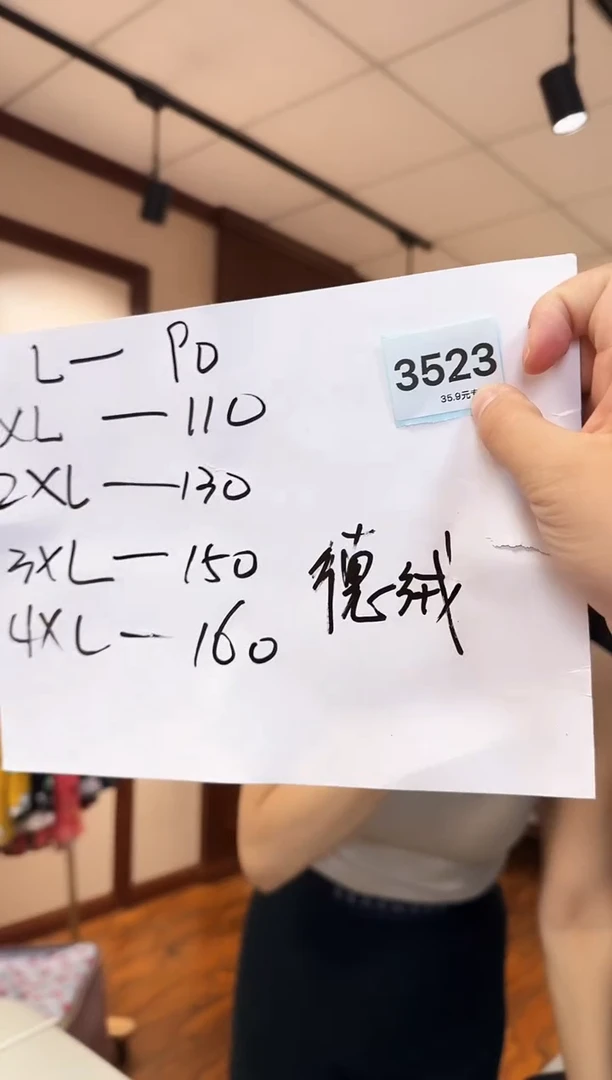 L — 90
XL — 110
2XL — 130
3XL — 150
4XL — 160
3523
35.9元
德绒